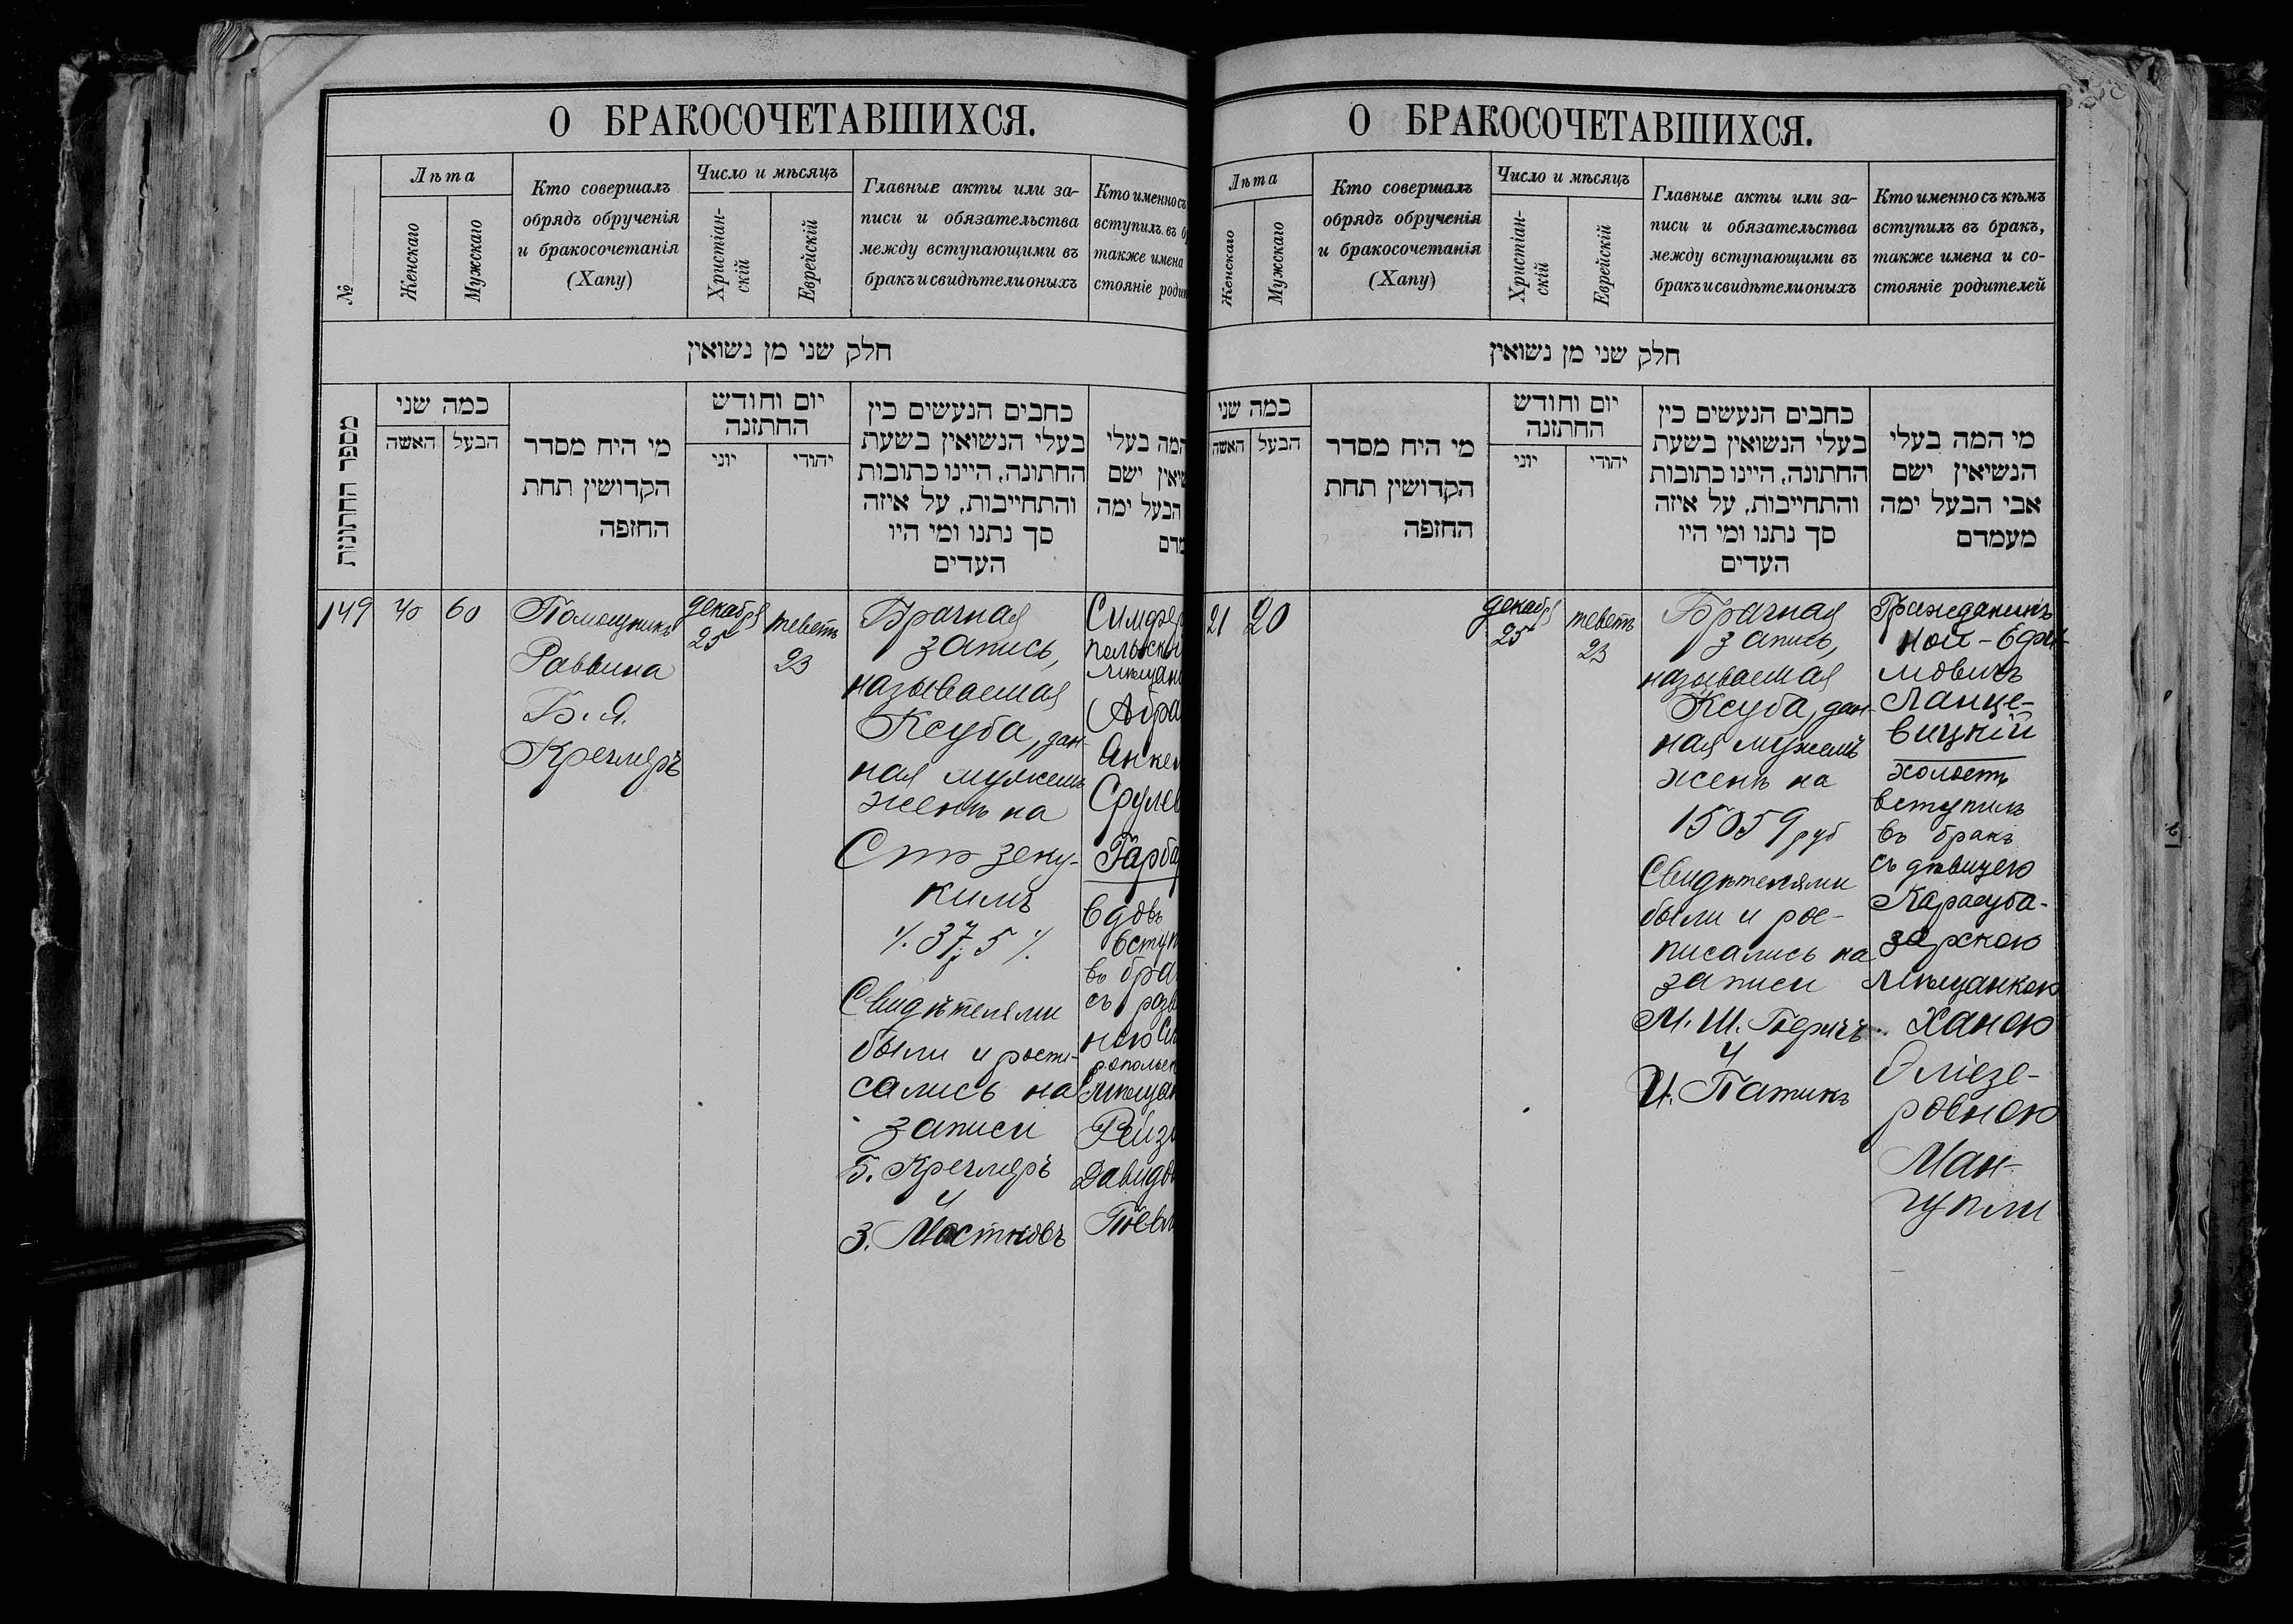 О БРАКОСОЧЕТАВШИХСЯ.
№
Лѣта
Женскаго
Мужскаго
Кто совершалъ
обрядъ обрученія
и бракосочетанія
(Хапу)
Число и мѣсяцъ
Христіан-
скій
Еврейскій
Главные акты или за-
писи и обязательства
между вступающими въ
бракъ и свидѣтели оныхъ
Кто именно съ
вступилъ въ б
также имена
стояніе родит
חלק שני מן נשואין
מספר החתונות
כמה שני
האשה
הבעל
מי היח מסדר
הקדושין תחת
החזפה
יום וחודש
החתזנה
יוני
יהודי
כחבים הנעשים כין
בעלי הנשואין בשעת
החתונה, היינו כתובות
והתחייבות, על איזה
סך נתנו ומי היו
העדים
המה בעלי
שיאין ישם
הבעל ימה
מדם
149
40
60
Помощникъ
Раввина
Б. Я.
Кречмеръ
декабря
25
теветъ
23
Брачная
запись,
называемая
Ксуба, дан-
ная мужемъ
женѣ на
Сто зеку-
кимъ
ч. 37,5 ч.
Свидѣтелями
были и роспи-
сались на
записи
Б. Кречмеръ
и
З. Мостковъ
Симфер
польскі
мѣщани
Абра
Анке
Срулев
Гарба
вдовъ
вступ
въ бра
съ разв
ною Си
ропольск
мѣщан
Рейз
Давидо
О БРАКОСОЧЕТАВШИХСЯ.
Лѣта
Женскаго
Мужскаго
Кто совершалъ
обрядъ обрученія
и бракосочетанія
(Хапу)
Число и мѣсяцъ
Христіан-
скій
Еврейскій
Главные акты или за-
писи и обязательства
между вступающими въ
бракъ и свидѣтели оныхъ
Кто именно съ кѣмъ
вступилъ въ бракъ,
также имена и со-
стояніе родителей
חלק שני מן נשואין
כמה שני
האשה
הבעל
מי היח מסדר
הקדושין תחת
החזפה
יום וחודש
החתזנה
יוני
יהודי
כחבים הנעשים כין
בעלי הנשואין בשעת
החתונה, היינו כתובות
והתחייבות, על איזה
סך נתנו ומי היו
העדים
מי המה בעלי
הנשיאין ישם
אבי הבעל ימה
מעמדם
21
20
декабря
25
теветъ
23
Брачная
запись,
называемая
Ксуба, дан-
ная мужемъ
женѣ на
15059 руб
Свидѣтелями
были и рос-
писались на
записи
М. Ш.
и
И. Патикъ
Гражданинъ
Ной-Ефи-
мовичъ
Ланце-
вицкій
холостъ
вступилъ
въ бракъ
съ дѣвицею
Карасуба-
зарскою
мѣщанкою
Ханою
Эліезе-
ровною
Ман-
гупли